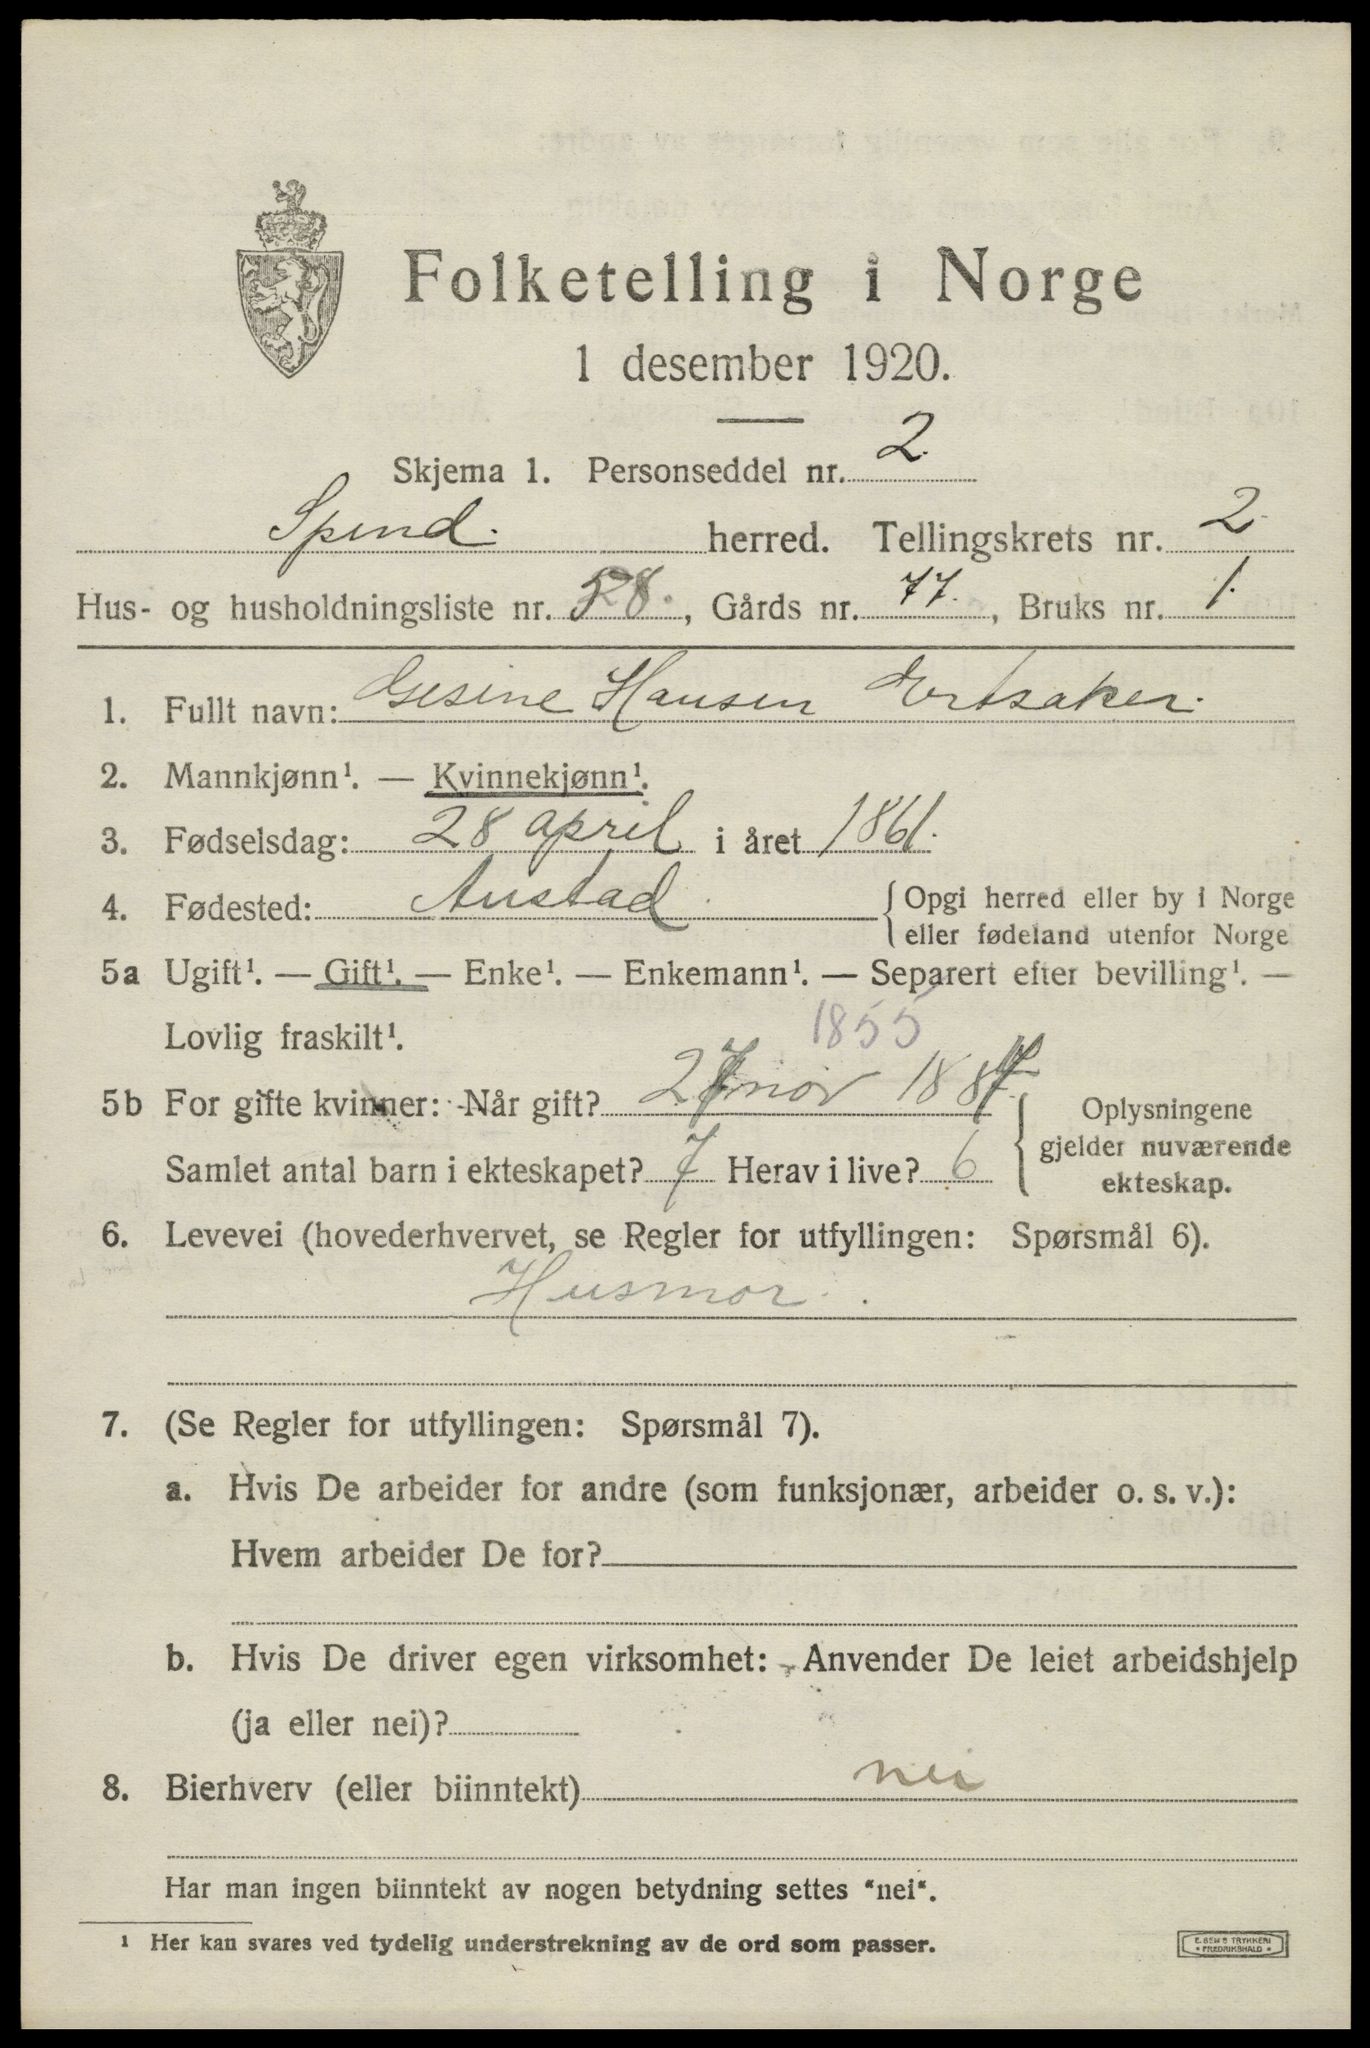 Folketelling i Norge
1 desember 1920.
Skjema 1. Personseddel nr. 2
Spind. herred. Tellingskrets nr. 2
Hus- og husholdningsliste nr. 58., Gårds nr. 77., Bruks nr. 1.
1. Fullt navn: Gesine Hansen Ertsaker.
2. Mannkjønn¹. — Kvinnekjønn¹.
3. Fødselsdag: 28 april i året 1861.
4. Fødested: Austad. {Opgi herred eller by i Norge
eller fødeland utenfor Norge
5a Ugift¹. — Gift¹. — Enke¹. — Enkemann¹. — Separert efter bevilling¹. —
Lovlig fraskilt¹.
1855
5b For gifte kvinner: Når gift? 27 nov 1887
Samlet antal barn i ekteskapet? 7 Herav i live? 6
{Oplysningene
gjelder nuværende
ekteskap.
6. Levevei (hovederhvervet, se Regler for utfyllingen: Spørsmål 6).
Husmor.
7. (Se Regler for utfyllingen: Spørsmål 7).
a. Hvis De arbeider for andre (som funksjonær, arbeider o. s. v.):
Hvem arbeider De for?
b. Hvis De driver egen virksomhet: Anvender De leiet arbeidshjelp
(ja eller nei)?
8. Bierhverv (eller biinntekt) nei
Har man ingen biinntekt av nogen betydning settes "nei".
¹ Her kan svares ved tydelig understrekning av de ord som passer.
E. SEM'S TRYKKERI
FREDRIKSHALD